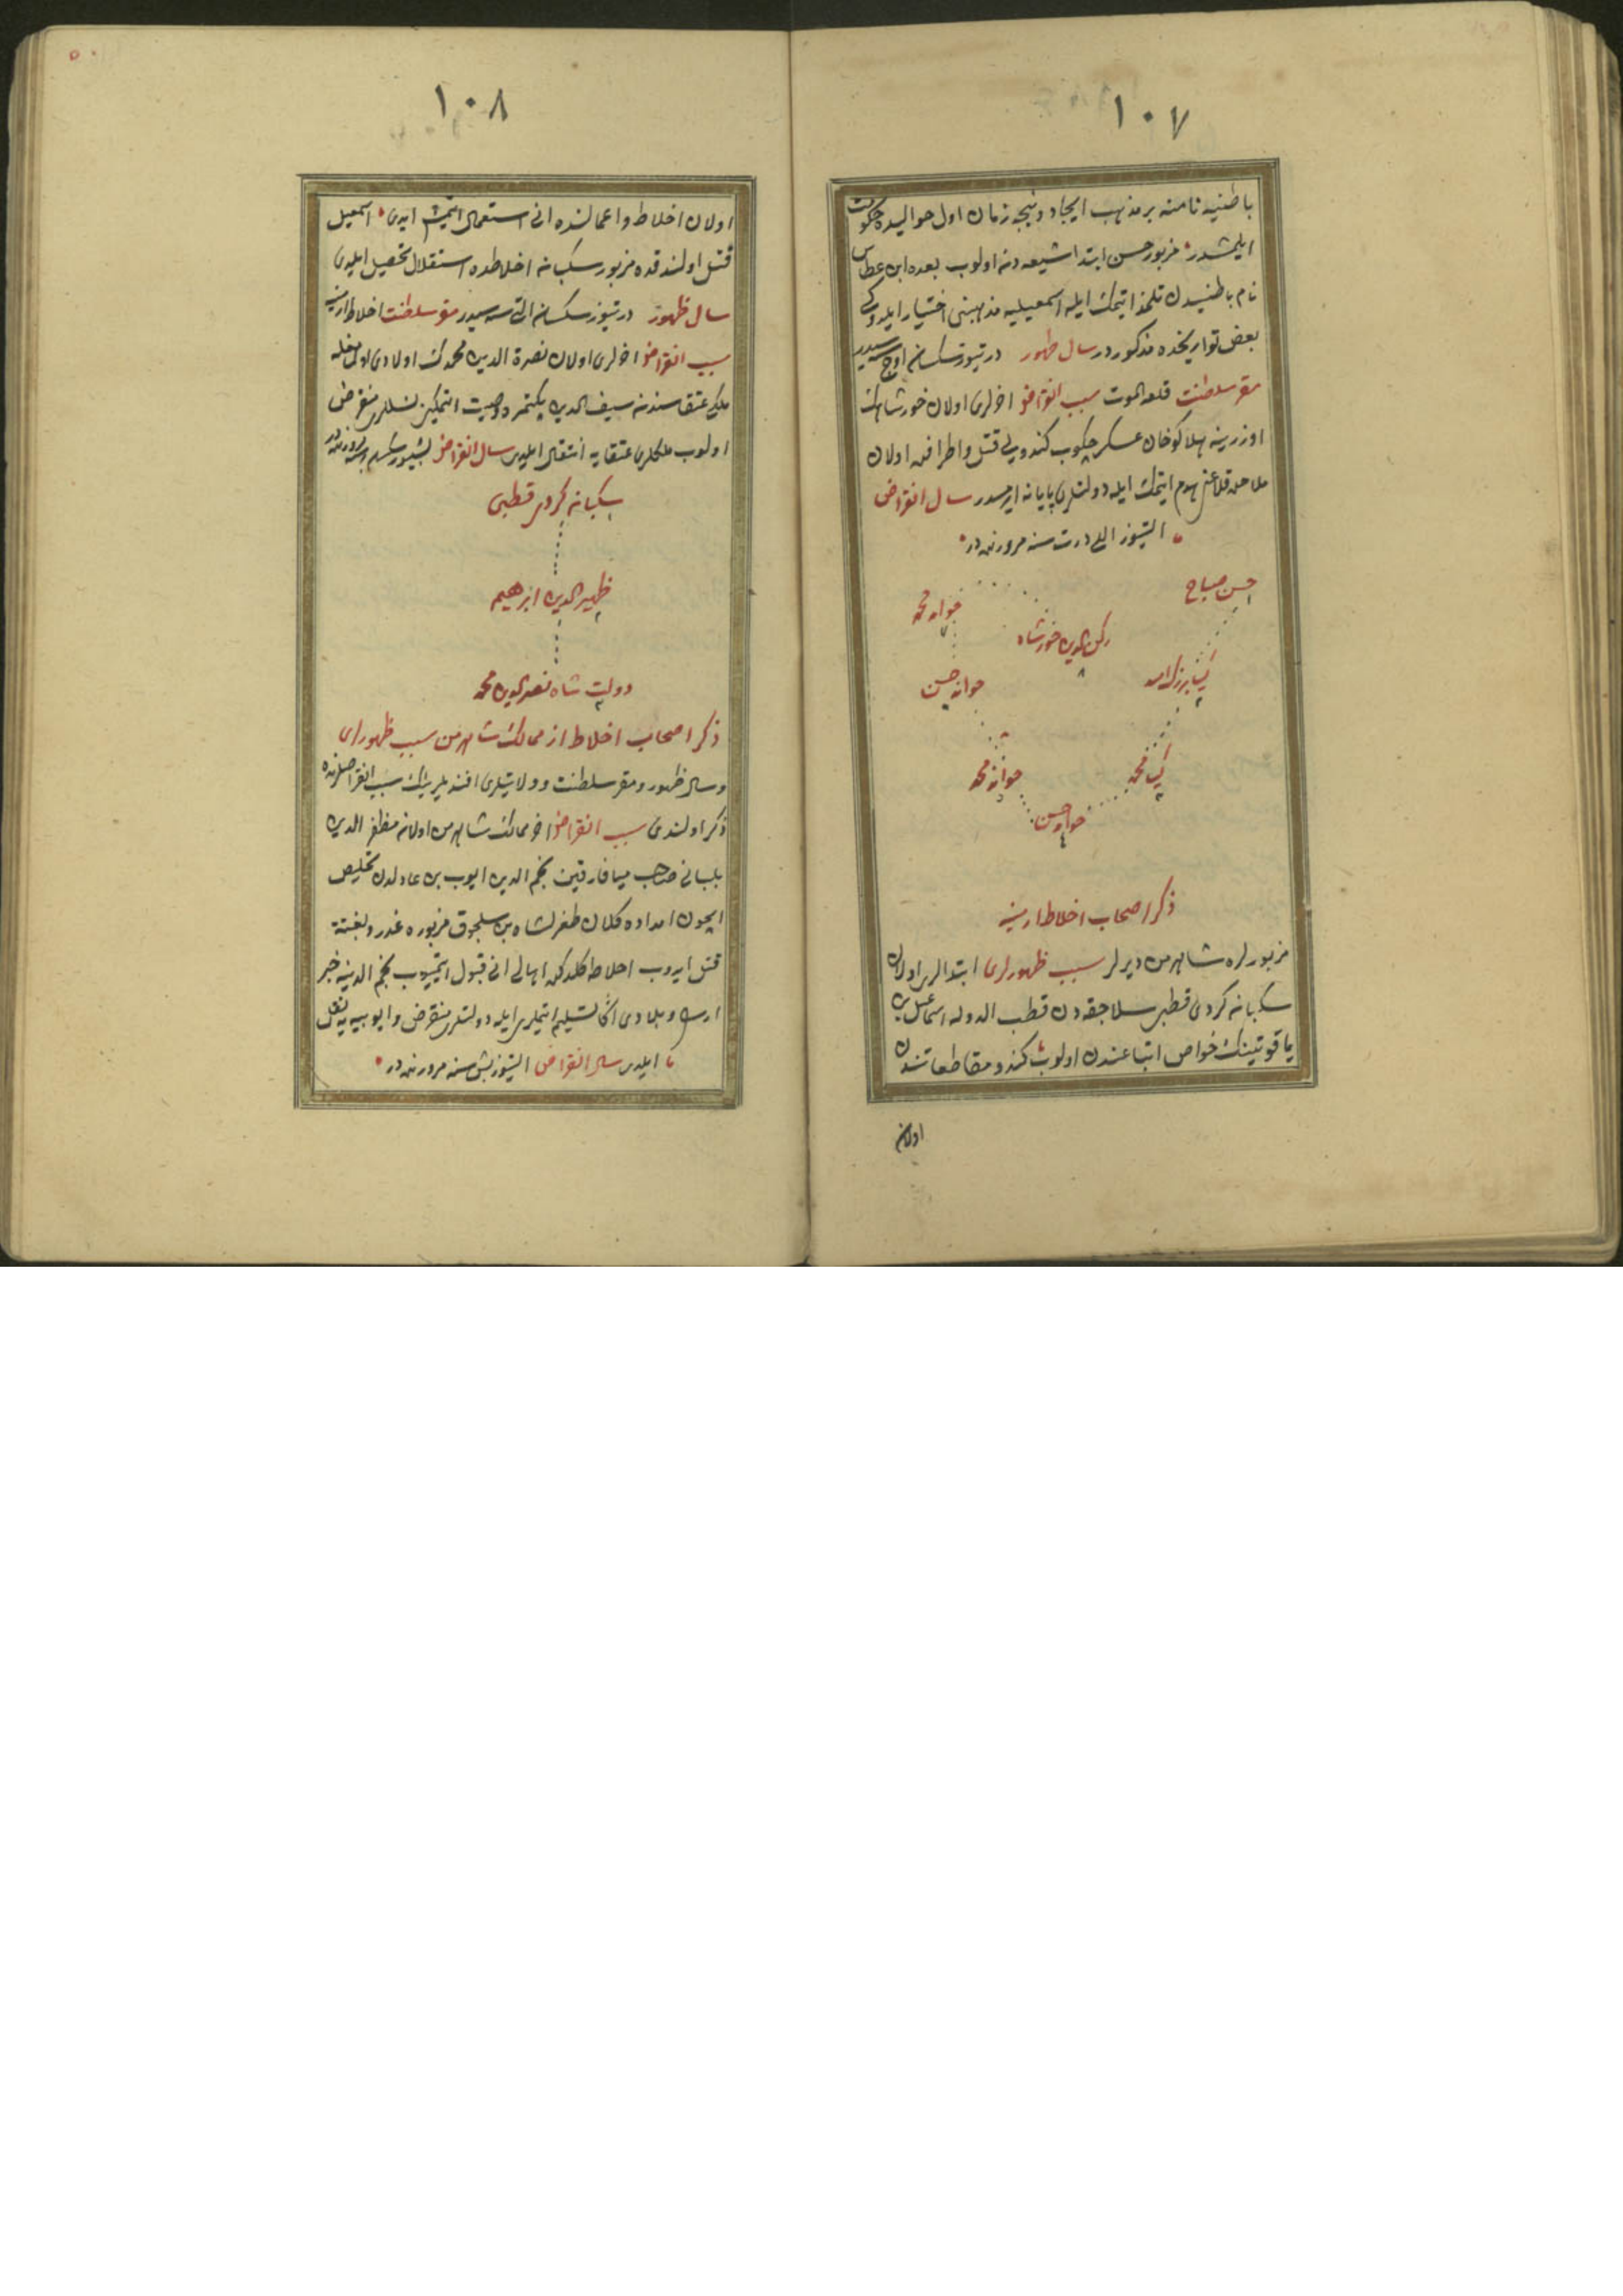 ١٠٧
باطنیه نامنه بر مذهب ایجاد و نیجه زمان اول حوالیده حکومت
ایلمشدر مزبور حسن ابتدا شیعه دن اولوب بعده ابن عطاس
نام باطنیدن تلمذ ایتمک ایله اسمعیلیه مذهبنی اختیار ایلدوکی
بعض تواریخده مذکوردر سال ظهور درتیوز سکسان اوچ سنه سیدر
مقر سلطنت قلعه الموت سبب انقراض اخرلری اولان خورشاهک
اوزرینه هلاکوخان عسکر چکوب کندویی قتل و اطرافنده اولان
ملاحده قلاعنی هدم ایتمک ایله دولتلری پایانه ایرمشدر سال انقراض
التیوز اللی درت سنه مرورنده در
حسن صباح
١
کیا بزرک امید
٢
کیا محمد
٣
خواند حسن
٤
خواند محمد
خواند حسن
خواند محمد
٧
رکن الدین خورشاه
٨
ذکر اصحاب اخلاط ارمنیه
مزبورلره شاهرمن دیرلر سبب ظهورلری ابتدالری اولان
سکبانه کردی قطبی سلاجقه دن قطب الدوله اسماعیل بن
یاقوتینک خواص اتباعندن اولوب کندو مقاطعاتندن
اولان
١٠٨
اولان اخلاط و اعمالنده انی استعمال ایتمش ایدی اسمعیل
قتل اولندقده مزبور سکبانه اخلاطده استقلال تحصیل ایلدی
سال ظهور درتیوز سکسان التی سنه سیدر مقر سلطنت اخلاط ارمنیه
سبب انقراض اخرلری اولان نصرة الدین محمدک اولادی اولمامغله
ملکی عتقاسندن سیف الدین بکتمره وصیت ایتمکین نسللری منقرض
اولوب ملکلری عتقایه انتقال ایلدی سال انقراض بشیوز سکسان سنه مرورنده در
سکبانه کردی قطبی
ظهیر الدین ابرهیم
٢
دولت شاه نصر الدین محمد
٣
ذکر اصحاب اخلاط از ممالک شاهرمن سبب ظهورلری
و سال ظهور و مقر سلطنت و ولایتلری افندیلرینک سبب انقراضلرنده
ذکر اولندی سبب انقراض اخر ممالک شاهرمن اولان مظفر الدین
بلبانی صاحب میافارقین نجم الدین ایوب بن عادلدن تخلیص
ایچون امداده کلان طغرلشاه بن سلجوق مزبوره غدر و بغتة
قتل ایدوب اخلاطه کلدکده اهالی انی قبول ایتمیوب نجم الدینه خبر
ارسال و بلادی اکا تسلیم ایتملری ایله دولتلری منقرض و ایوبیه یه نقل
ایلدی سال انقراض التیوز بش سنه مرورنده در